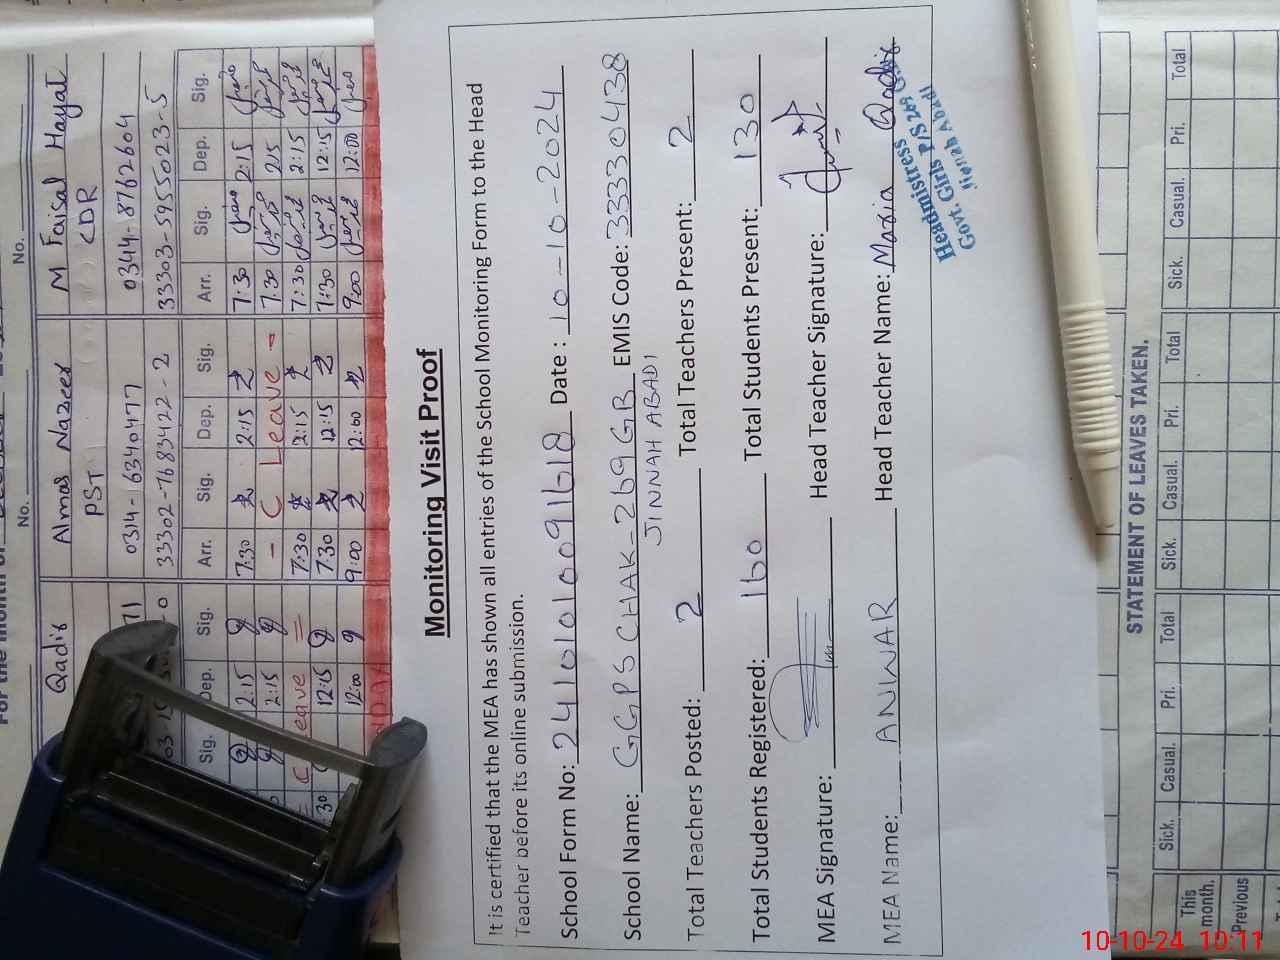 For the month of
No.
No.
Qadis
Almas Nazeer
M Faisal Hayat
PST
CDR
71
0314-6340477
0344-8762604
33302-7683422-2
33303-5955023-5
Sig. Dep. Sig. Arr. Sig. Dep. Sig. Arr. Sig. Dep. Sig.
2:15 7:30 2:15 7:30 2:15
2:15 - C Leave - 7:30 2:15
C eave = 7:30 2:15 7:30 2:15
30 12:15 7:30 12:15 7:30 12:15
12:00 9:00 12:00 9:00 12:00
Monitoring Visit Proof
It is certified that the MEA has shown all entries of the School Monitoring Form to the Head
Teacher before its online submission.
School Form No: 24101010091618 Date : 10-10-2024
School Name: GGPS CHAK-269 GB EMIS Code: 33330438
JINNAH ABADI
Total Teachers Posted: 2 Total Teachers Present: 2
Total Students Registered: 160 Total Students Present: 130
MEA Signature: Head Teacher Signature:
MEA Name: ANWAR Head Teacher Name: Maria Qadis
Headmistress
Govt. Girls P/S 269 G.B
Jinnah Abadi
STATEMENT OF LEAVES TAKEN.
Sick. Casual. Pri. Total Sick. Casual. Pri. Total Sick. Casual. Pri. Total
This month.
Previous
10-10-24 10:11